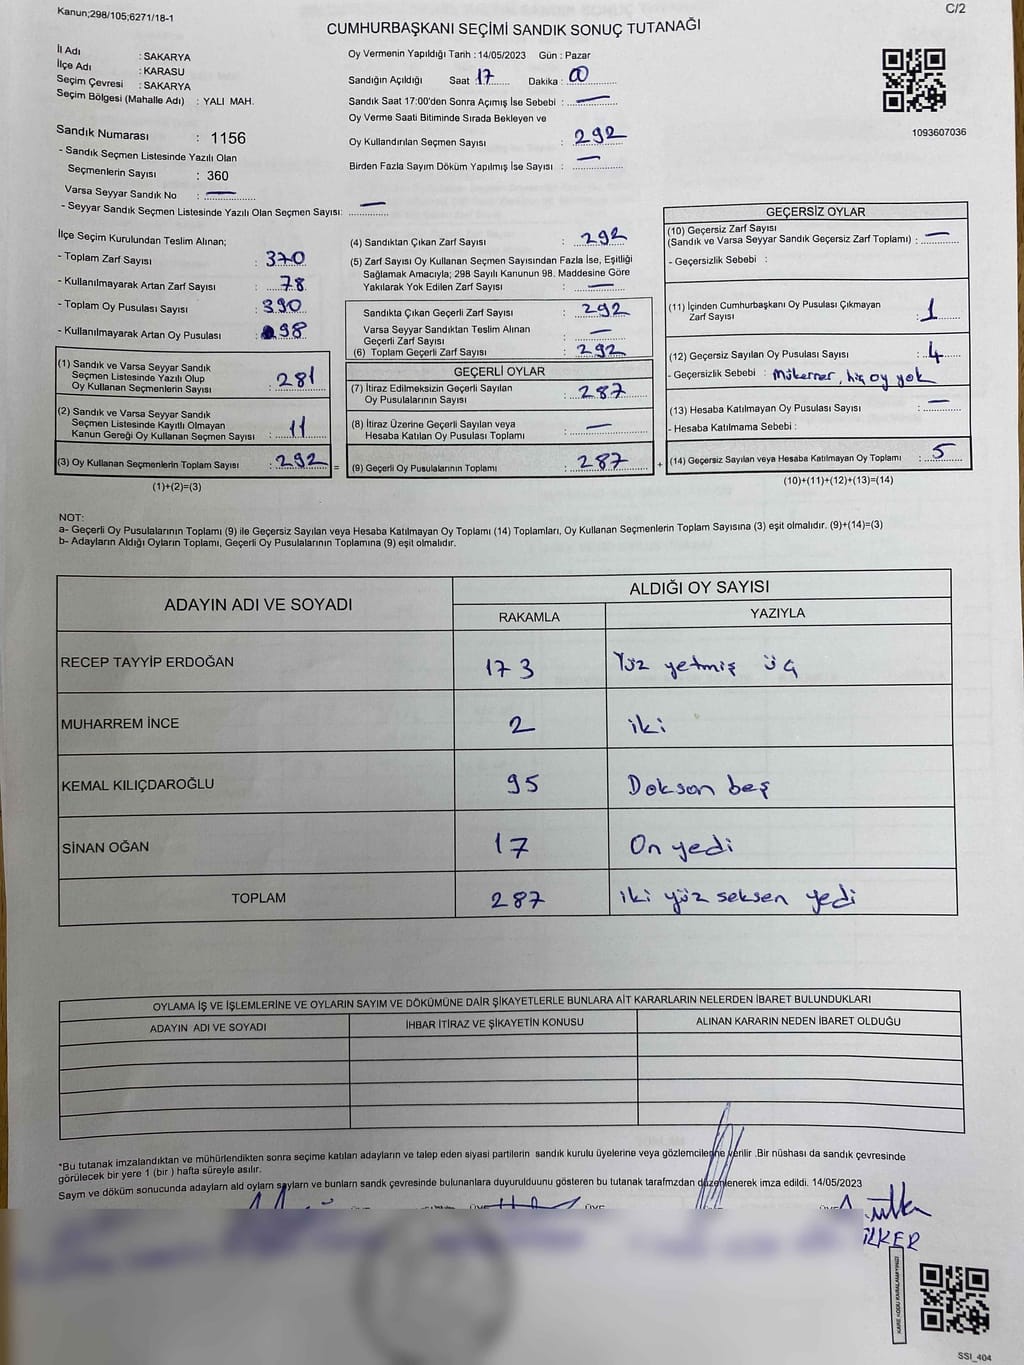 Kanun;298/105;6271/18-1
C/2
CUMHURBAŞKANI SEÇİMİ SANDIK SONUÇ TUTANAĞI
İl Adı : SAKARYA
İlçe Adı : KARASU
Seçim Çevresi : SAKARYA
Seçim Bölgesi (Mahalle Adı) : YALI MAH.
Sandık Numarası : 1156
- Sandık Seçmen Listesinde Yazılı Olan
Seçmenlerin Sayısı : 360
Varsa Seyyar Sandık No : —
- Seyyar Sandık Seçmen Listesinde Yazılı Olan Seçmen Sayısı: —
Oy Vermenin Yapıldığı Tarih : 14/05/2023 Gün : Pazar
Sandığın Açıldığı Saat 17 Dakika : 00
Sandık Saat 17:00'den Sonra Açımış İse Sebebi : —
Oy Verme Saati Bitiminde Sırada Bekleyen ve
Oy Kullandırılan Seçmen Sayısı : 292
Birden Fazla Sayım Döküm Yapılmış İse Sayısı : —
1093607036
İlçe Seçim Kurulundan Teslim Alınan;
- Toplam Zarf Sayısı : 370
- Kullanılmayarak Artan Zarf Sayısı : 78
- Toplam Oy Pusulası Sayısı : 390
- Kullanılmayarak Artan Oy Pusulası : 98
(1) Sandık ve Varsa Seyyar Sandık
Seçmen Listesinde Yazılı Olup
Oy Kullanan Seçmenlerin Sayısı : 281
(2) Sandık ve Varsa Seyyar Sandık
Seçmen Listesinde Kayıtlı Olmayan
Kanun Gereği Oy Kullanan Seçmen Sayısı : 11
(3) Oy Kullanan Seçmenlerin Toplam Sayısı : 292 =
(1)+(2)=(3)
(4) Sandıktan Çıkan Zarf Sayısı : 292
(5) Zarf Sayısı Oy Kullanan Seçmen Sayısından Fazla İse, Eşitliği
Sağlamak Amacıyla; 298 Sayılı Kanunun 98. Maddesine Göre
Yakılarak Yok Edilen Zarf Sayısı : —
Sandıkta Çıkan Geçerli Zarf Sayısı : 292
Varsa Seyyar Sandıktan Teslim Alınan
Geçerli Zarf Sayısı : —
(6) Toplam Geçerli Zarf Sayısı : 292
GEÇERLİ OYLAR
(7) İtiraz Edilmeksizin Geçerli Sayılan
Oy Pusulalarının Sayısı : 287
(8) İtiraz Üzerine Geçerli Sayılan veya
Hesaba Katılan Oy Pusulası Toplamı : —
(9) Geçerli Oy Pusulalarının Toplamı : 287 +
GEÇERSİZ OYLAR
(10) Geçersiz Zarf Sayısı
(Sandık ve Varsa Seyyar Sandık Geçersiz Zarf Toplamı) : —
- Geçersizlik Sebebi :
(11) İçinden Cumhurbaşkanı Oy Pusulası Çıkmayan
Zarf Sayısı : 1
(12) Geçersiz Sayılan Oy Pusulası Sayısı : 4
- Geçersizlik Sebebi : Mükerrer, hiç oy yok
(13) Hesaba Katılmayan Oy Pusulası Sayısı : —
- Hesaba Katılmama Sebebi :
(14) Geçersiz Sayılan veya Hesaba Katılmayan Oy Toplamı : 5
(10)+(11)+(12)+(13)=(14)
NOT:
a- Geçerli Oy Pusulalarının Toplamı (9) ile Geçersiz Sayılan veya Hesaba Katılmayan Oy Toplamı (14) Toplamları, Oy Kullanan Seçmenlerin Toplam Sayısına (3) eşit olmalıdır. (9)+(14)=(3)
b- Adayların Aldığı Oyların Toplamı, Geçerli Oy Pusulalarının Toplamına (9) eşit olmalıdır.
ADAYIN ADI VE SOYADI
ALDIĞI OY SAYISI
RAKAMLA YAZIYLA
RECEP TAYYİP ERDOĞAN 173 Yüz yetmiş üç
MUHARREM İNCE 2 iki
KEMAL KILIÇDAROĞLU 95 Doksan beş
SİNAN OĞAN 17 On yedi
TOPLAM 287 iki yüz seksen yedi
OYLAMA İŞ VE İŞLEMLERİNE VE OYLARIN SAYIM VE DÖKÜMÜNE DAİR ŞİKAYETLERLE BUNLARA AİT KARARLARIN NELERDEN İBARET BULUNDUKLARI
ADAYIN ADI VE SOYADI İHBAR İTİRAZ VE ŞİKAYETİN KONUSU ALINAN KARARIN NEDEN İBARET OLDUĞU
*Bu tutanak imzalandıktan ve mühürlendikten sonra seçime katılan adayların ve talep eden siyasi partilerin sandık kurulu üyelerine veya gözlemcilerine verilir .Bir nüshası da sandık çevresinde
görülecek bir yere 1 (bir ) hafta süreyle asılır.
Sayım ve döküm sonucunda adayların ald oylam sayların ve bunların sandk çevresinde bulunanlara duyurulduunu gösteren bu tutanak tarafmzdan düzenlenerek imza edildi. 14/05/2023
İLKER
SSI_404